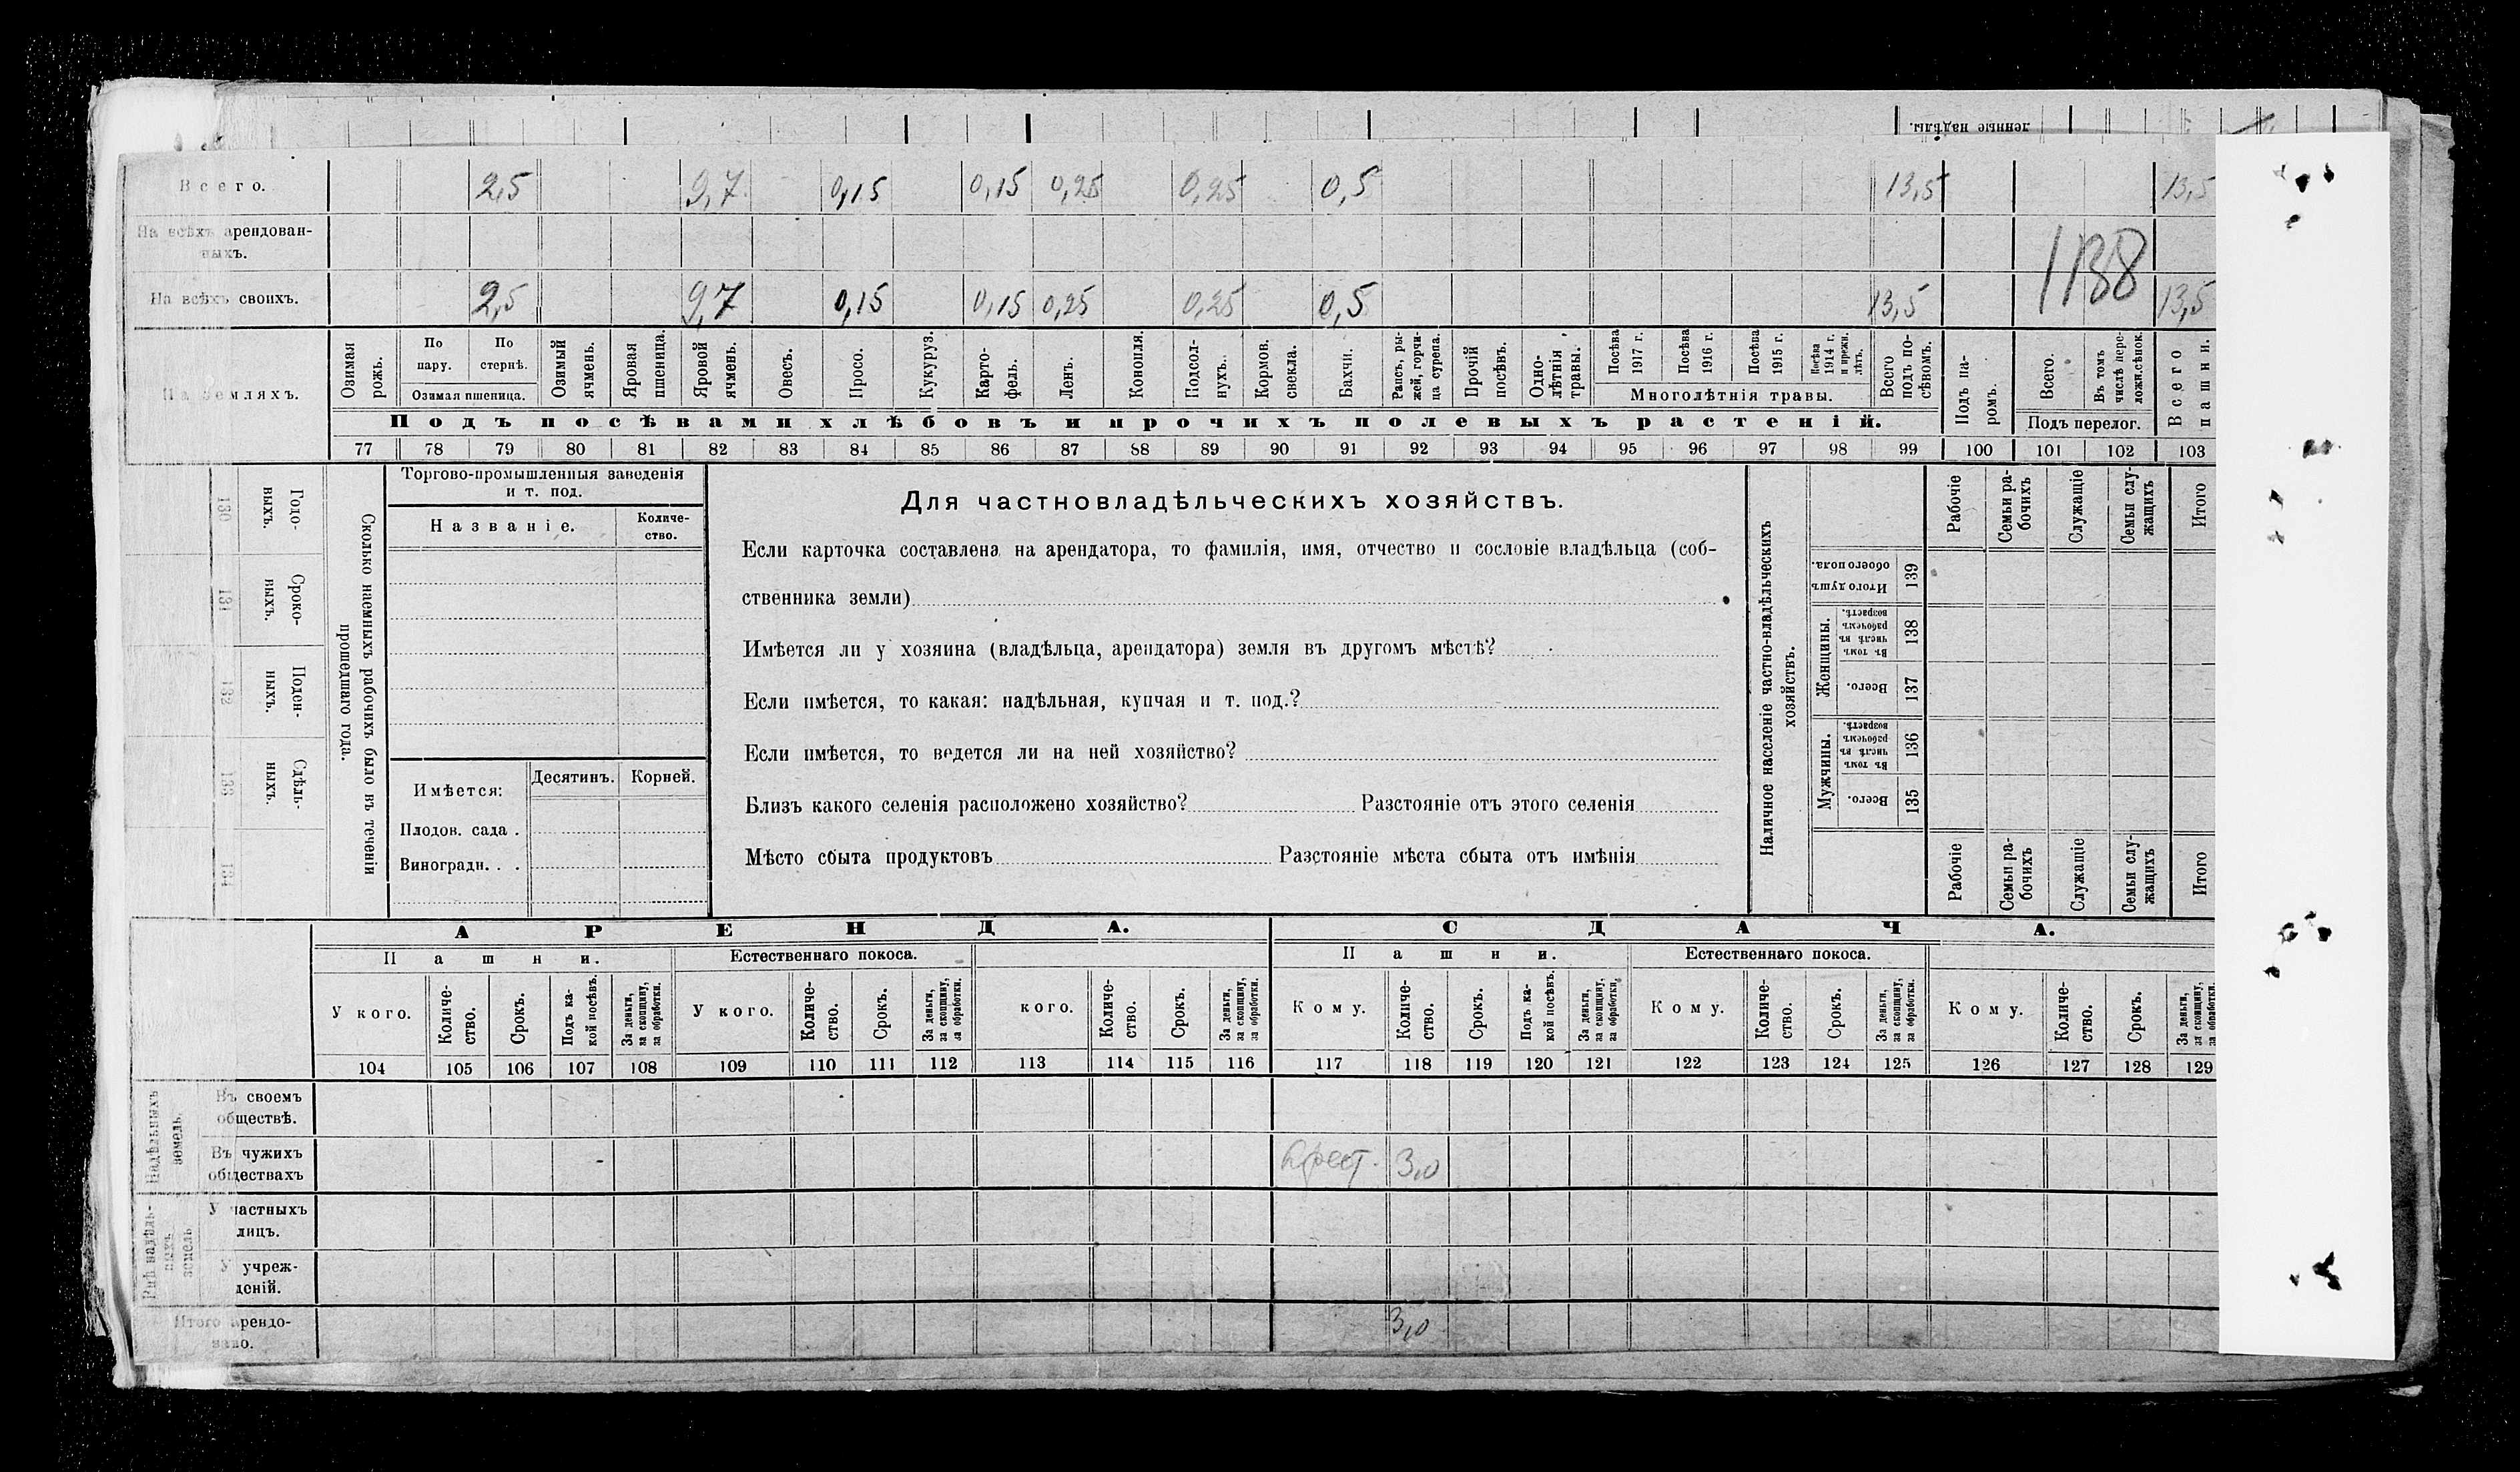 денные надѣлы.
Всего. 2,5 9,7 0,15 0,15 0,25 0,25 0,5 13,5 13,5
На всѣхъ арендован-
ныхъ.
1188
На всѣхъ своихъ. 2,5 9,7 0,15 0,15 0,25 0,25 0,5 13,5 13,5
На земляхъ.
Озимая рожь.
По пару.
По стернѣ.
Озимая пшеница.
Озимый ячмень.
Яровая пшеница.
Яровой ячмень.
Овесъ.
Просо.
Кукуруз.
Карто-
фель.
Ленъ.
Конопля.
Подсол-
нухъ.
Кормов. свекла.
Бахчи.
Рапсъ, ры-
жей, горчи-
ца сурепа.
Прочій посѣвъ.
Одно-
лѣтнія травы.
Посѣва 1917 г.
Посѣва 1916 г.
Посѣва 1915 г.
Посѣва 1914 г. и прежн. лѣтъ.
Многолѣтнія травы.
Всего подъ по-
сѣвомъ.
Подъ па-
ромъ.
Всего.
Въ томъ числѣ пере-
ложн. сѣнок.
Подъ перелог.
Всего пашни.
Подъ посѣвами хлѣбовъ и прочихъ полевыхъ растеній.
77 78 79 80 81 82 83 84 85 86 87 88 89 90 91 92 93 94 95 96 97 98 99 100 101 102 103
Годо-
выхъ.
130
Сроко-
выхъ.
131
Поден-
ныхъ.
132
Сдѣль-
ныхъ.
133
134
Сколько наемныхъ рабочихъ было въ теченіи
прошедшаго года.
Торгово-промышленныя заведенія
и т. под.
Названіе.
Количе-
ство.
Имѣется: Десятинъ. Корней.
Плодов. сада .
Виноградн. . .
Для частновладѣльческихъ хозяйствъ.
Если карточка составлена на арендатора, то фамилія, имя, отчество и сословіе владѣльца (соб-
ственника земли)
Имѣется ли у хозяина (владѣльца, арендатора) земля въ другомъ мѣстѣ?
Если имѣется, то какая: надѣльная, купчая и т. под.?
Если имѣется, то ведется ли на ней хозяйство?
Близъ какого селенія расположено хозяйство? Разстояніе отъ этого селенія
Мѣсто сбыта продуктовъ Разстояніе мѣста сбыта отъ имѣнія
Наличное населеніе частно-владѣльческихъ
хозяйствъ.
Рабочіе
Семьи ра-
бочихъ
Служащіе
Семьи слу-
жащихъ
Итого
Итого душъ обоего пола. 139
Женщины.
Въ томъ числѣ въ рабочемъ возрастѣ. 138
Всего. 137
Мужчины.
Въ томъ числѣ въ рабочемъ возрастѣ. 136
Всего. 135
Рабочіе
Семьи ра-
бочихъ
Служащіе
Семьи слу-
жащихъ
Итого
АРЕНДА. СДАЧА.
Пашни. Естественнаго покоса. Пашни. Естественнаго покоса.
У кого.
Количе-
ство.
Срокъ.
Подъ ка-
кой посѣвъ.
За деньги,
за скопщину,
за обработки.
У кого.
Количе-
ство.
Срокъ.
За деньги,
за скопщину,
за обработки.
кого.
Количе-
ство.
Срокъ.
За деньги,
за скопщину,
за обработки.
Кому.
Количе-
ство.
Срокъ.
Подъ ка-
кой посѣвъ.
За деньги,
за скопщину,
за обработки.
Кому.
Количе-
ство.
Срокъ.
За деньги,
за скопщину,
за обработки.
Кому.
Количе-
ство.
Срокъ.
За деньги,
за скопщину,
за обработки.
104 105 106 107 108 109 110 111 112 113 114 115 116 117 118 119 120 121 122 123 124 125 126 127 128 129
Надѣльныхъ
земель.
Въ своемъ
обществѣ.
Въ чужихъ
обществахъ
Крест. 3,0
Внѣ надѣль-
ныхъ
земель
У частныхъ
лицъ.
У учреж-
деній.
Итого арендо-
вано.
3,0